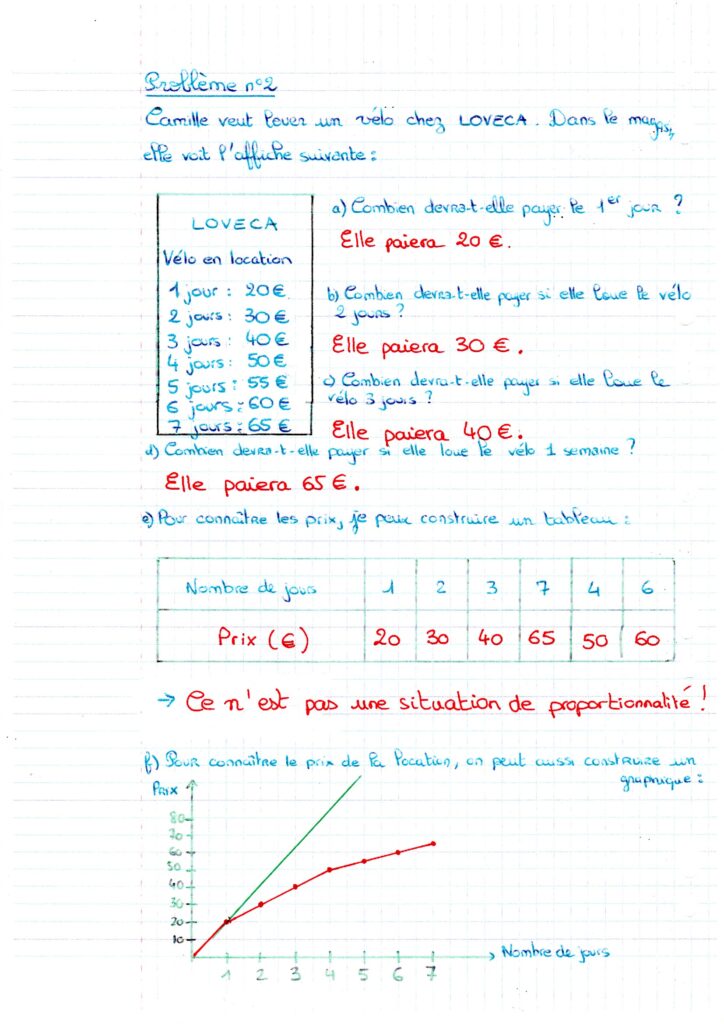 Problème n°2
Camille veut louer un vélo chez LOVECA. Dans le magasin,
elle voit l'affiche suivante :
LOVECA
Vélo en location
1 jour : 20 €
2 jours : 30 €
3 jours : 40 €
4 jours : 50 €
5 jours : 55 €
6 jours : 60 €
7 jours : 65 €
a) Combien devra-t-elle payer le 1er jour ?
Elle paiera 20 €.
b) Combien devra-t-elle payer si elle loue le vélo
2 jours ?
Elle paiera 30 €.
c) Combien devra-t-elle payer si elle loue le
vélo 3 jours ?
Elle paiera 40 €.
d) Combien devra-t-elle payer si elle loue le vélo 1 semaine ?
Elle paiera 65 €.
e) Pour connaître les prix, je peux construire un tableau :
Nombre de jours 1 2 3 7 4 6
Prix (€) 20 30 40 65 50 60
→ Ce n'est pas une situation de proportionnalité !
f) Pour connaître le prix de la location, on peut aussi construire un
graphique :
Prix
80
70
60
50
40
30
20
10
Nombre de jours
1 2 3 4 5 6 7